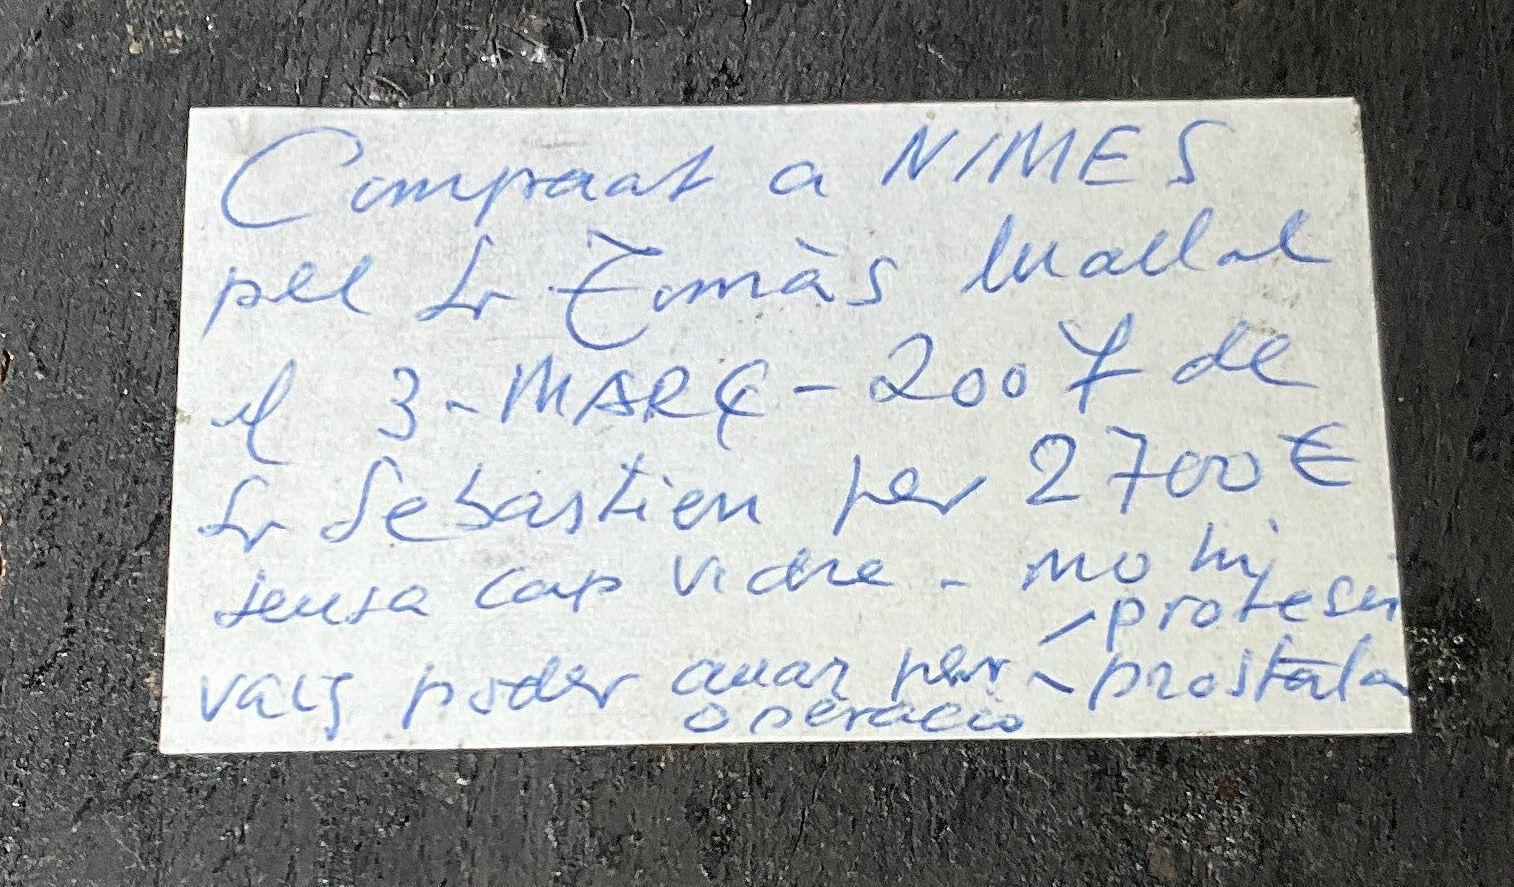 Comprat a NIMES
pel Sr Tomàs Mallol
el 3-MARÇ-2007 de
Sr Sebastien per 2700€
sensa cap vidre - no hi
protesis
vaig poder anar per prostata
operacio